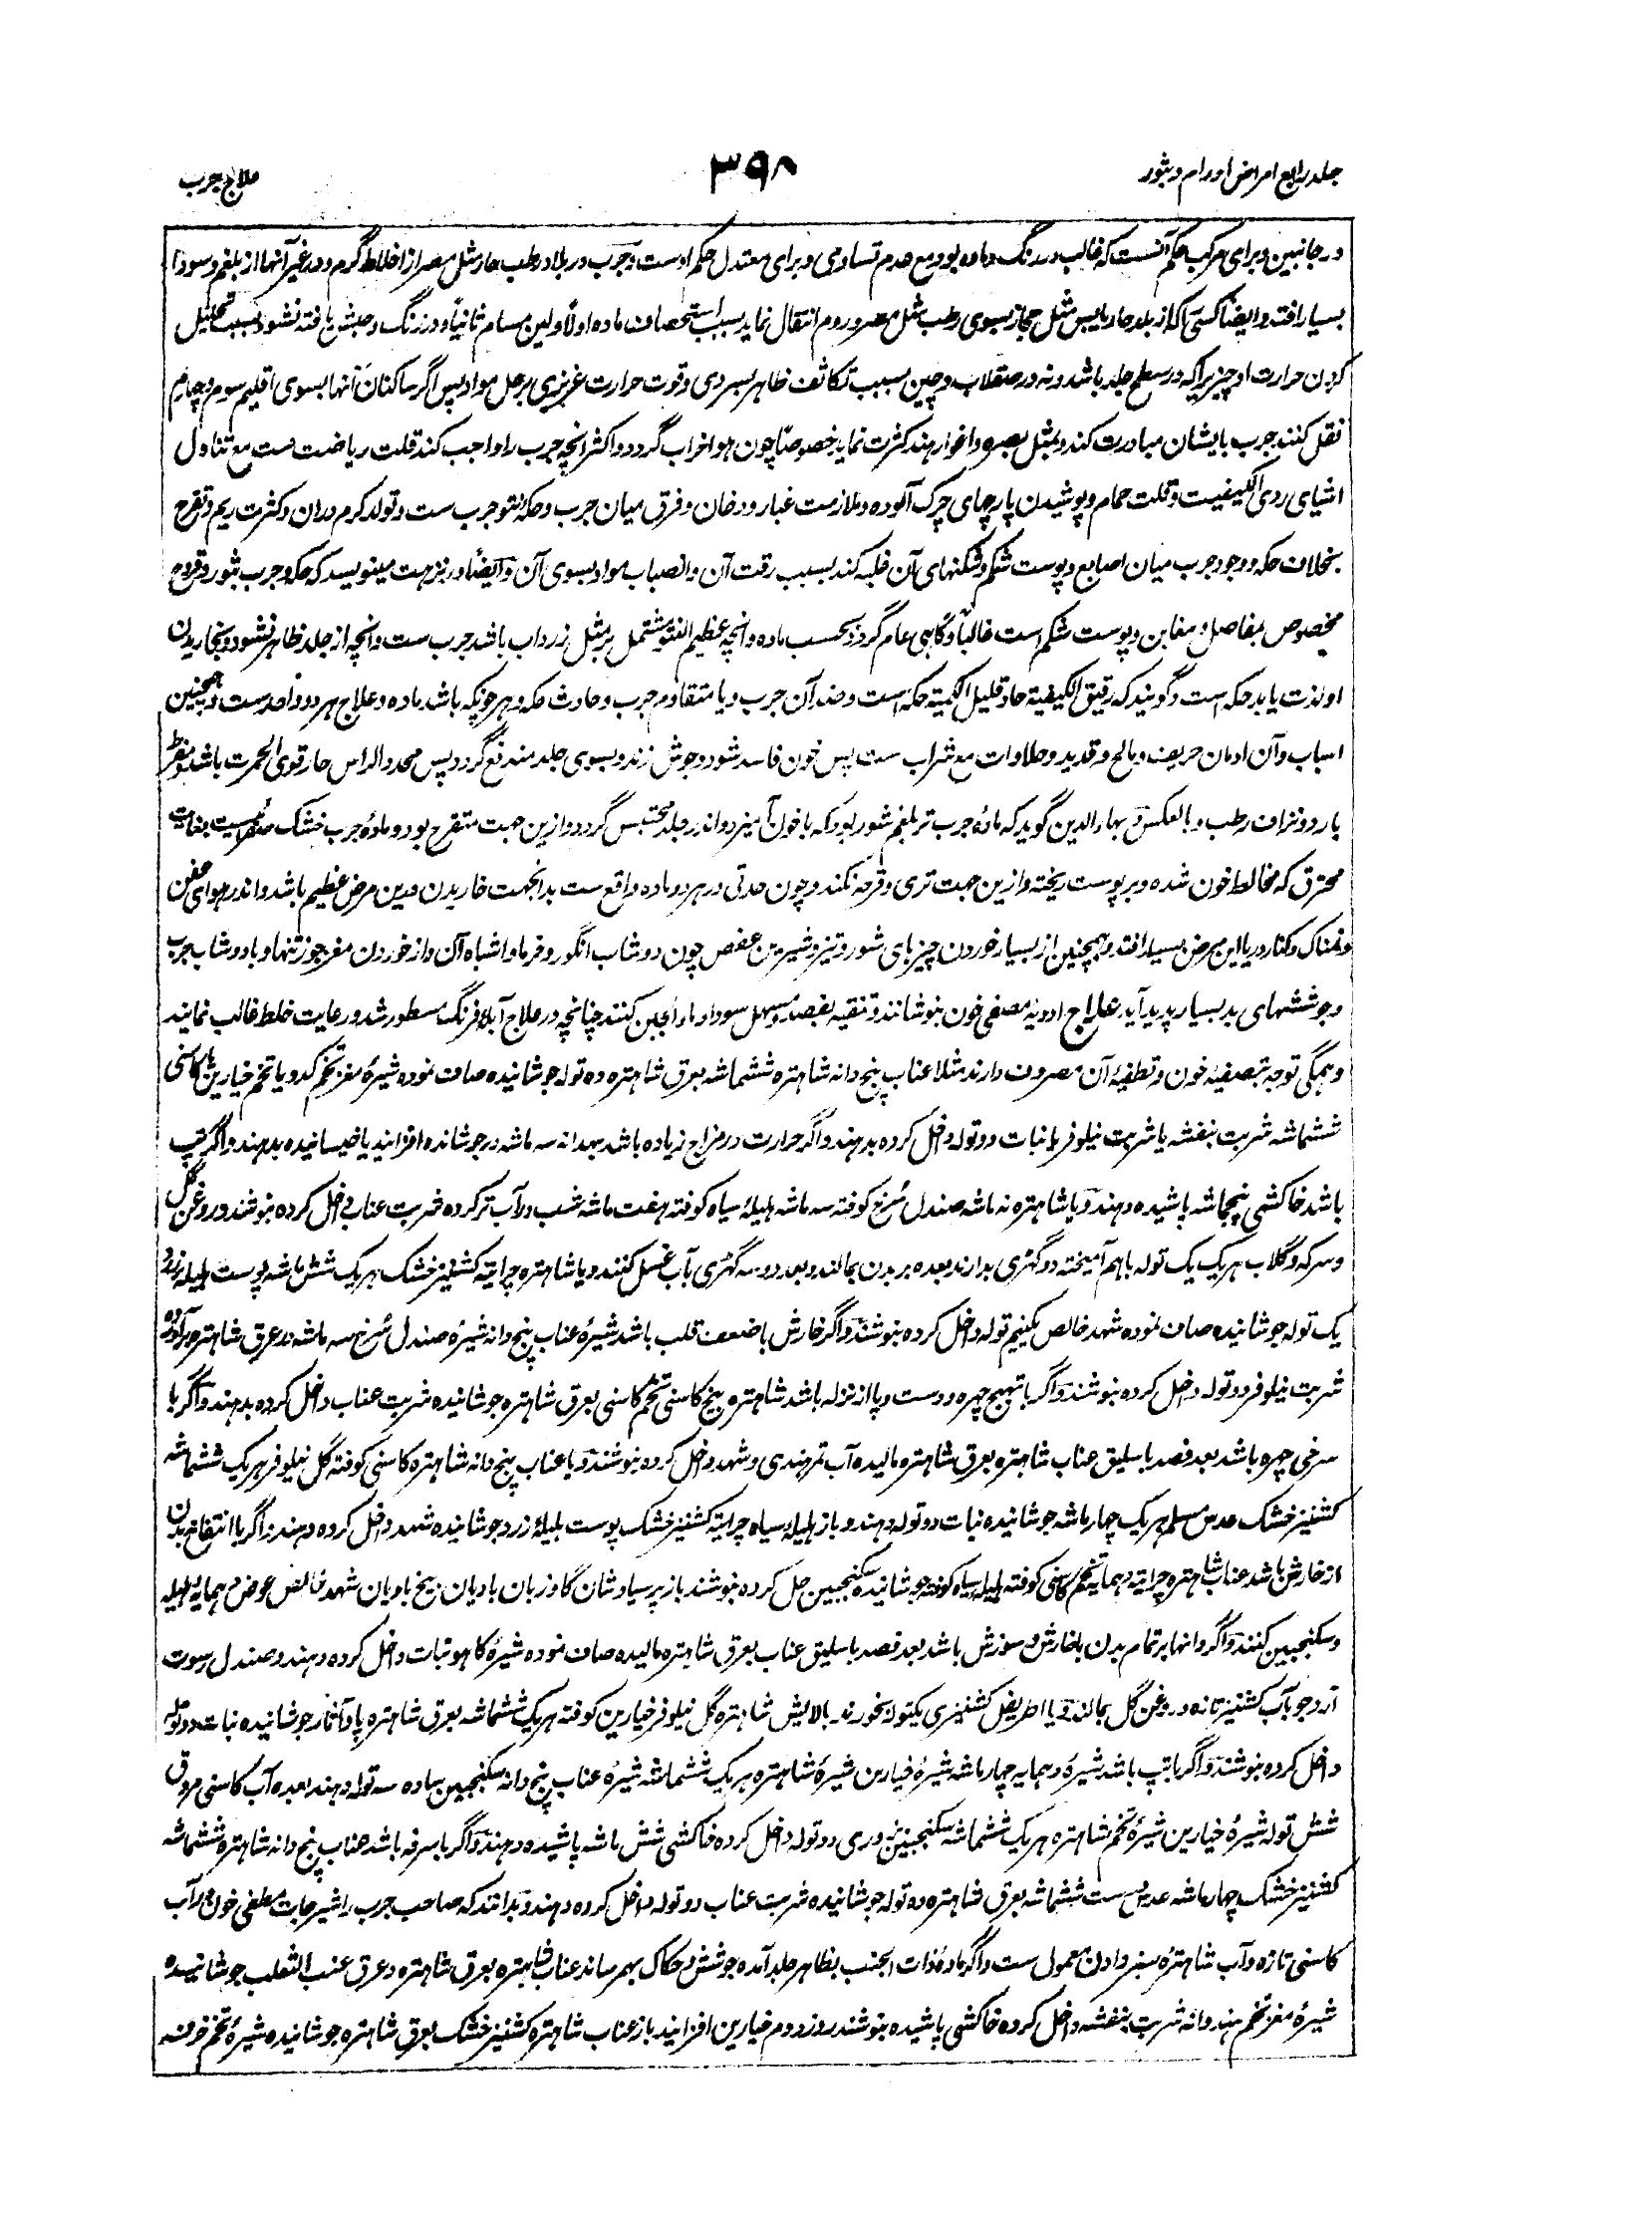 جلد رابع امراض اورام و بثور
۳۹۸
علاج جرب
در جانبین و برای مرکب حکم آنست که غالب در رنگ و ماده بود و مع عدم تساوی و برای معتدل حکم اوست و جرب در بلاد رطب حار مثل مصر از اخلاط گرم و در غیر آنها از بلغم و سودا
بسیار افتد و ایضا کسی که از بلد حار یابس مثل حجاز بسوی رطب مثل مصر و روم انتقال نماید بسبب استحصاف ماده اولا و لین مسام ثانیا و در زنگ و حبشه یافته نشود بسبب تحلیل
کردن حرارت او چیزیرا که در سطح جلد باشد و نه در صقلاب و چین بسبب تکاثف ظاهر بسردی و قوت حرارت غریزی بر حل مواد پس اگر ساکنان آنها بسوی اقلیم سوم و چهارم
نقل کنند جرب بایشان مبادرت کند و بمثل بصره و اغوار هند کثرت نماید خصوصا چون هوا خراب گردد و اکثر انچه جرب را واجب کند قلت ریاضت ست مع تناول
اشیای ردی الکیفیت و قلت حمام و پوشیدن پارچهای چرک آلوده و ملازمت غبار و دخان و فرق میان جرب و حکه نتو جرب ست و تولد کرم دران و کثرت ریم و تقرح
بخلاف حکه و وجود جرب میان اصابع و پوست شکم و شکنهای آن غلبه کند بسبب رقت آن و انصباب مواد بسوی آن و ایضا در نزهت مینویسد که حکه و جرب بثور و قروح
مخصوص بمفاصل و مغابن و پوست شکم است غالبا و گاهی عام گردد بحسب ماده و انچه عظیم النتو مشتمل بر مثل زرداب باشد جرب ست و انچه از جلد ظاهر نشود و بخاریدن
او لذت یابد حکه است و گویند که رقیق الکیفیة حاد قلیل الکمیة حکه است و ضد آن جرب و یا متقاوم جرب و حادث حکه و هر چونکه باشد ماده و علاج هر دو واحد ست و همچنین
اسباب و آن ادمان حریف و مالح و قدید و حلاوات مع شراب ست پس خون فاسد شود و جوش زند و بسوی جلد مندفع گردد پس محدد الراس حار قوی الحمرت باشد و مفرطح
بارد و نزاف رطب و بالعکس و بهاء الدین گوید که ماده جرب تر بلغم شور بود که با خون آمیزد و اندر جلد محتبس گردد و ازین جهت متقرح بود و ماده جرب خشک صفراست بغایت
محترق که مخالط خون شده و بر پوست ریخته و ازین جهت تری و قرحه نکند و چون حدتی در هر دو ماده واقع ست بدانجهت خاریدن درین مرض عظیم باشد و اندر هوای عفن
و نمناک و کنار دریا این مرض بسیار افتد و همچنین از بسیار خوردن چیزهای شور و تیز و شیرین عفص چون دوشاب انگور و خرما و اشباه آن و از خوردن مغز جوز تنها و با دوشاب جرب
و جوششهای بد بسیار پدید آید علاج ادویه مصفی خون بنوشانند و تنقیه بفصد و مسهل سودا و ماء الجبن کنند چنانچه در علاج آبله فرنگ مسطور شد و رعایت خلط غالب نمایند
و همگی توجه بتصفیه خون و تطفیه آن مصروف دارند مثلا عناب پنج دانه شاهتره ششماشه بعرق شاهتره ده توله جوشانیده صاف نموده شیره مغز تخم کدو یا تخم خیارین یا کاسنی
ششماشه شربت بنفشه یا شربت نیلوفر یا نبات دو توله داخل کرده بدهند و اگر حرارت در مزاج زیاده باشد بهدانه سه ماشه در جوشانده افزایند یا خیسانیده بدهند و اگر تپ
باشد خاکشی پنجماشه پاشیده دهند و یا شاهتره نه ماشه صندل سرخ کوفته سه ماشه هلیله سیاه کوفته هفت ماشه شب در آب تر کرده شربت عناب داخل کرده بنوشند و روغن گل
و سرکه و گلاب هر یک یک توله باهم آمیخته دو گهڑی بدارند بعده بر بدن بمالند و بعد دو سه گهڑی بآب غسل کنند و یا شاهتره چرایته کشنیز خشک هر یک شش ماشه پوست هلیله زرد
یک توله جوشانیده صاف نموده شهد خالص یکنیم توله داخل کرده بنوشند و اگر خارش با ضعف قلب باشد شیره عناب پنج دانه شیره صندل سرخ سه ماشه در عرق شاهتره برآورده
شربت نیلوفر دو توله داخل کرده بنوشند و اگر با تهبج چهره و دست و پا از نزله باشد شاهتره بیخ کاسنی تخم کاسنی بعرق شاهتره جوشانیده شربت عناب داخل کرده بدهند و اگر با
سرخی چهره باشد بعد فصد باسلیق عناب شاهتره بعرق شاهتره مالیده آب تمر هندی و شهد داخل کرده بنوشند و یا عناب پنج دانه شاهتره کاسنی کوفته گل نیلوفر هر یک ششماشه
کشنیز خشک عدس مسلم هر یک چهار ماشه جوشانیده نبات دو توله دهند و باز هلیله سیاه چرایته کشنیز خشک پوست هلیله زرد جوشانیده شهد داخل کرده دهند و اگر با انتفاخ بدن
از خارش باشد عناب شاهتره چرایته دهمایه تخم کاسنی کوفته هلیله سیاه کوفته جوشانیده سکنجبین حل کرده بنوشند باز پرسیاوشان گاوزبان بادیان بیخ بادیان شهد خالص عوض دهمایه هلیله
و سکنجبین کنند و اگر دانها بر تمام بدن باخارش و سوزش باشد بعد فصد باسلیق عناب بعرق شاهتره مالیده صاف نموده شیره کاهو نبات داخل کرده دهند و صندل رسوت
آرد جو بآب کشنیز تازه در روغن گل بمالند و یا اطریفل کشنیزی یکتوله بخورند بالایش شاهتره گل نیلوفر خیارین کوفته هر یک ششماشه بعرق شاهتره پاو آثار جوشانیده نبات دو توله
داخل کرده بنوشند و اگر با تپ باشد شیره دهمایه چهار ماشه شیره خیارین شیره شاهتره هر یک ششماشه شیره عناب پنج دانه سکنجبین ساده سه توله دهند بعده آب کاسنی مروق
شش توله شیره خیارین شیره تخم شاهتره هر یک ششماشه سکنجبین بزوری دو توله داخل کرده خاکشی شش ماشه پاشیده دهند و اگر با سرفه باشد عناب پنج دانه شاهتره ششماشه
کشنیز خشک چهار ماشه عدس ست ششماشه بعرق شاهتره ده توله جوشانیده شربت عناب دو توله داخل کرده دهند و بدانند که صاحب جرب را شیرجات مطفی خون در آب
کاسنی تازه و آب شاهتره سبز دادن معمول ست و اگر ماده ذات الجنب بظاهر جلد آمده جوشش و حکاک بهم رساند عناب شاهتره بعرق شاهتره و عرق عنب الثعلب جوشانیده
شیره مغز تخم هندوانه شربت بنفشه داخل کرده خاکشی پاشیده بنوشند روز دوم خیارین افزایند باز عناب شاهتره کشنیز خشک بعرق شاهتره جوشانیده شیره تخم خرفه